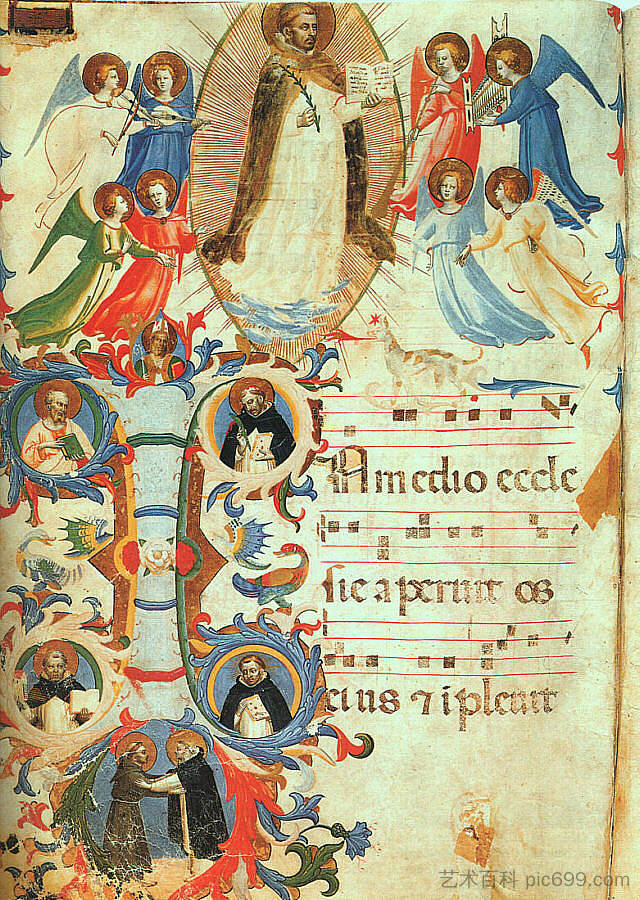 N medio eccle
sie aperuit os
eius ⁊ ipleuit
艺术百科 pic699.com